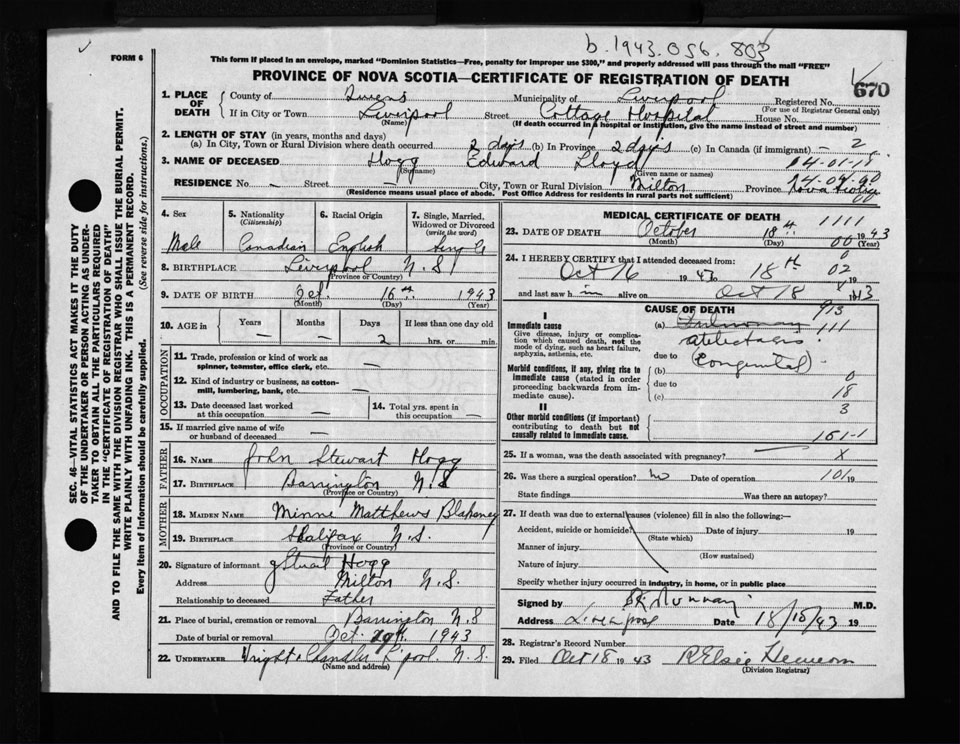 b.1943.056.803
FORM 6
This form if placed in an envelope, marked "Dominion Statistics—Free, penalty for improper use $300," and properly addressed will pass through the mail "FREE"
PROVINCE OF NOVA SCOTIA—CERTIFICATE OF REGISTRATION OF DEATH
670
SEC. 46—VITAL STATISTICS ACT MAKES IT THE DUTY
OF THE UNDERTAKER OR PERSON ACTING AS UNDER-
TAKER TO OBTAIN ALL THE PARTICULARS REQUIRED
IN THE "CERTIFICATE OF REGISTRATION OF DEATH"
AND TO FILE THE SAME WITH THE DIVISION REGISTRAR WHO SHALL ISSUE THE BURIAL PERMIT.
WRITE PLAINLY WITH UNFADING INK. THIS IS A PERMANENT RECORD.
Every item of information should be carefully supplied. (See reverse side for instructions.)
1. PLACE OF DEATH County of Queens Municipality of Liverpool Registered No.
(For use of Registrar General only)
If in City or Town Liverpool Street Cottage Hospital House No.
(Name) (If death occurred in a hospital or institution, give the name instead of street and number)
2. LENGTH OF STAY (in years, months and days)
(a) In City, Town or Rural Division where death occurred 2 days (b) In Province 2 days (c) In Canada (if immigrant) — 2
3. NAME OF DECEASED Hogg Edward Lloyd 14-01-18
(Surname) (Given name or names)
RESIDENCE No. — Street — City, Town or Rural Division Milton Province Nova Scotia
(Residence means usual place of abode. Post Office Address for residents in rural parts not sufficient)
4. Sex
Male
5. Nationality
(Citizenship)
Canadian
6. Racial Origin
English
7. Single, Married,
Widowed or Divorced
(write the word)
Single
8. BIRTHPLACE Liverpool N.S
(Province or Country)
9. DATE OF BIRTH Oct. 16th 1943
(Month) (Day) (Year)
10. AGE in Years Months Days If less than one day old
— — 2 hrs. or min.
OCCUPATION
11. Trade, profession or kind of work as
spinner, teamster, office clerk, etc. —
12. Kind of industry or business, as cotton-
mill, lumbering, bank, etc. —
13. Date deceased last worked
at this occupation —
14. Total yrs. spent in
this occupation —
15. If married give name of wife
or husband of deceased —
FATHER
16. NAME John Stewart Hogg
17. BIRTHPLACE Barrington N.S
(Province or Country)
MOTHER
18. MAIDEN NAME Minne Matthews Blakeney
19. BIRTHPLACE Halifax N.S.
(Province or Country)
20. Signature of informant J Stuart Hogg
Address Milton N.S.
Relationship to deceased Father
21. Place of burial, cremation or removal Barrington N.S
Date of burial or removal Oct. 19th 1943
22. UNDERTAKER Wright & Chandler L'pool. N.S.
(Name and address)
MEDICAL CERTIFICATE OF DEATH
1111
23. DATE OF DEATH October 18th 1943
(Month) (Day) (Year)
24. I HEREBY CERTIFY that I attended deceased from:
Oct 16 1943 18th 02
and last saw h im alive on Oct 18 1943
CAUSE OF DEATH 913
I
Immediate cause
Give disease, injury or complica-
tion which caused death, not the
mode of dying, such as heart failure,
asphyxia, asthenia, etc.
(a) Pulmonary 111
atelectasis
due to
Morbid conditions, if any, giving rise to
immediate cause (stated in order
proceeding backwards from im-
mediate cause).
(b) Congenital
due to 0
(c) 18
II
Other morbid conditions (if important)
contributing to death but not
causally related to immediate cause.
3
161-1
25. If a woman, was the death associated with pregnancy? X
26. Was there a surgical operation? no Date of operation 101 19
State findings Was there an autopsy?
27. If death was due to external causes (violence) fill in also the following:—
Accident, suicide or homicide? Date of injury 19
(State which)
Manner of injury
(How sustained)
Nature of injury
Specify whether injury occurred in industry, in home, or in public place
Signed by M.D.
Address Liverpool Date 18/10/43 19
28. Registrar's Record Number
29. Filed Oct 18 1943 R Elsie
(Division Registrar)